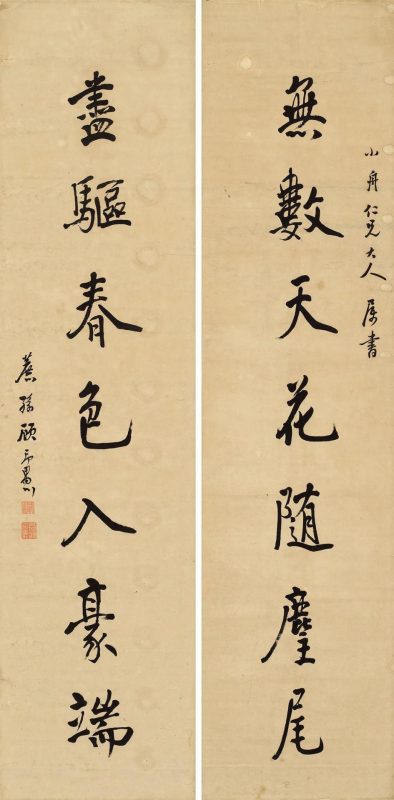 小舟仁兄大人属書
無數天花隨麈尾
盡驅春色入豪端
顧